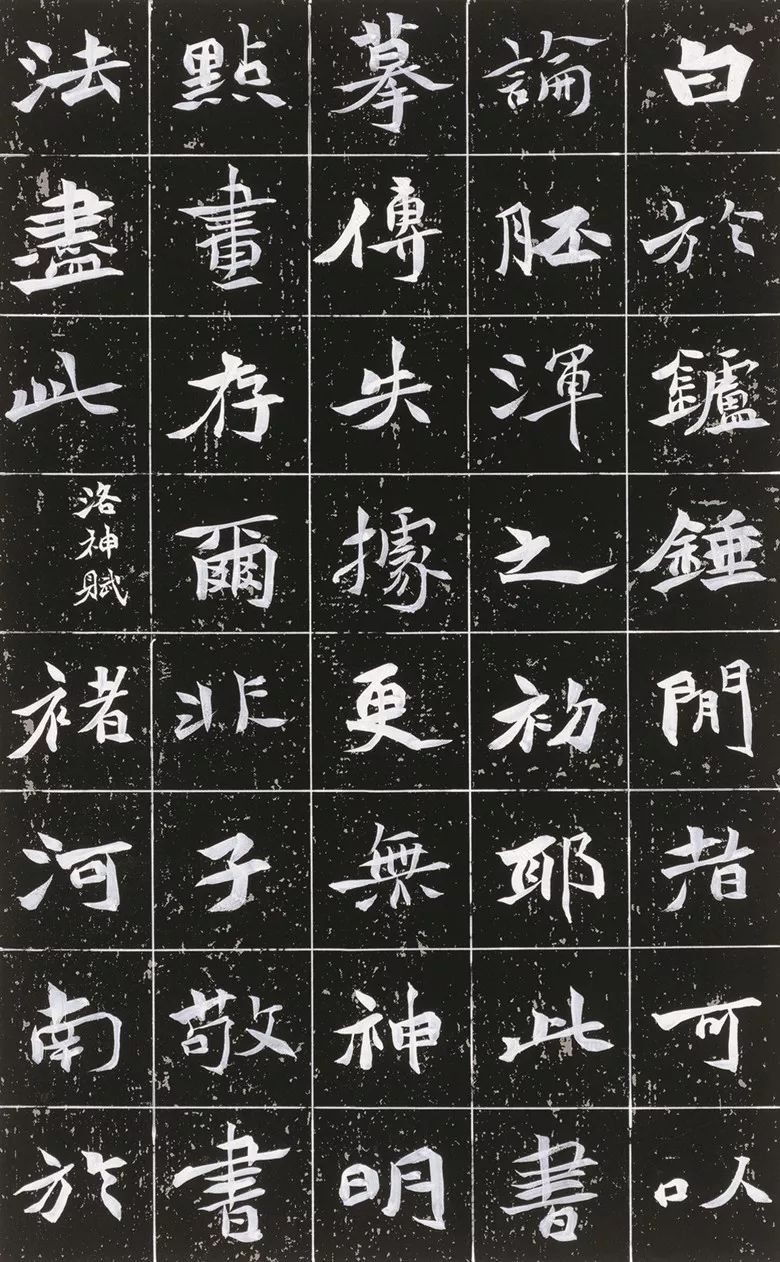 白於鑪錘閒者可以
論胚渾之初耶此書
摹傳失據更無神明
點畫存爾非子敬書
法盡此洛神賦褚河南於